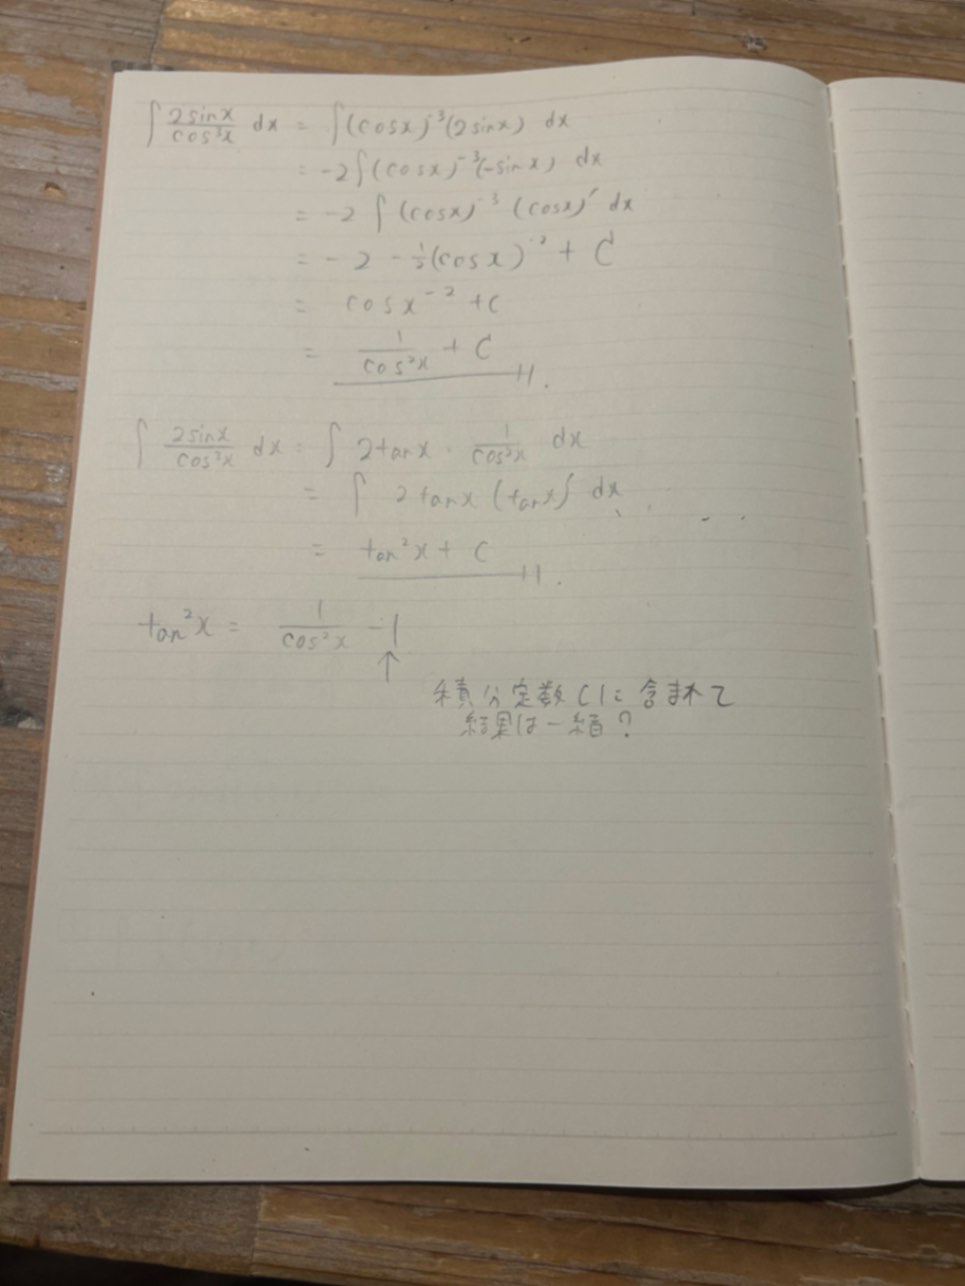 ∫ 2sinx/cos³x dx = ∫(cosx)⁻³(2sinx) dx
= -2∫(cosx)⁻³(-sinx) dx
= -2 ∫ (cosx)⁻³ (cosx)′ dx
= - 2 - ½(cosx)⁻² + C
= cosx⁻² + C
= 1/cos²x + C
∫ 2sinx/cos³x dx = ∫ 2tanx · 1/cos²x dx
= ∫ 2tanx (tanx)′ dx
= tan²x + C
tan²x = 1/cos²x - 1
↑
積分定数Cに含まれて
結果は一緒?